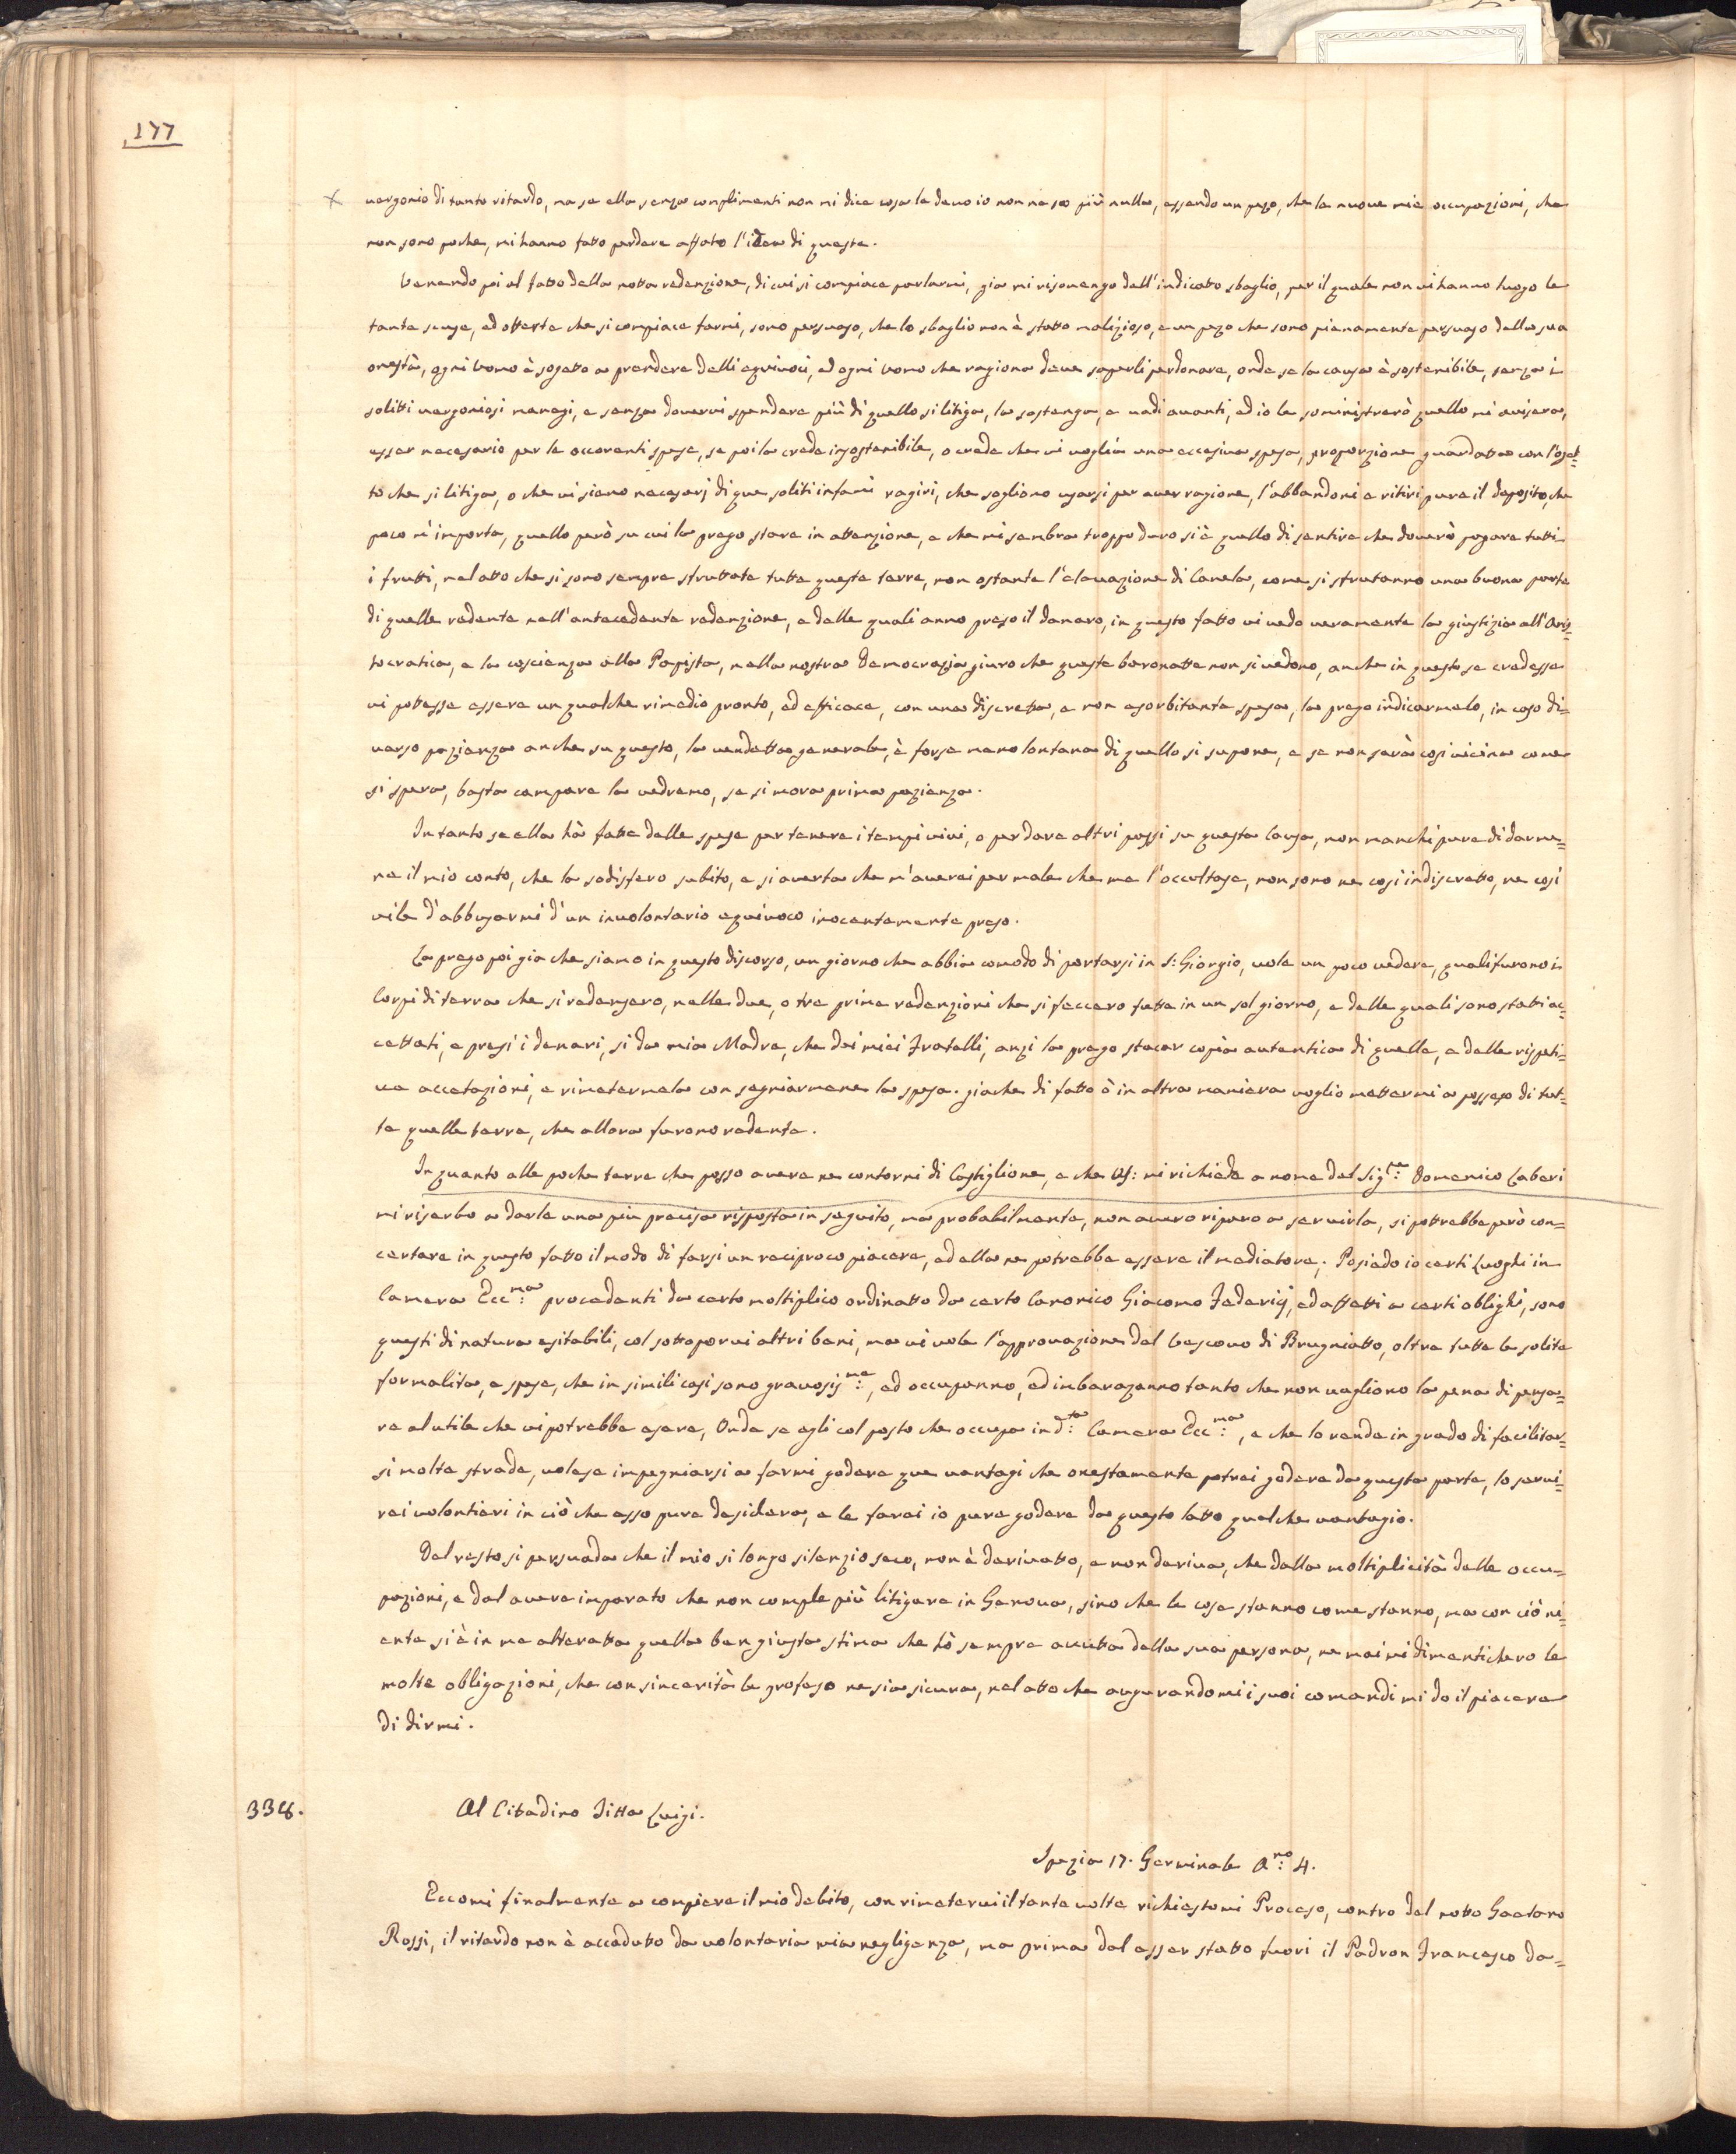 177
vergonio di tanto ritardo, ma se ella senza complimenti non mi dice cosa le devo io non ne so più nulla, essendo un pezo, che le nuove mie occupazioni, che
non sono poche, mi hanno fatto perdere affato l'idea di queste.
Venendo poi al fatto della notta redenzione, di cui si compiace parlarmi, gia mi risovengo dell'indicatto sbaglio, per il quale non vi hanno luogo le
tante scuse, ed offerte che si compiace farmi, sono persuaso, che lo sbaglio non è statto malizioso, e un pezo che sono pienamente persuaso della sua
onestà, ogni uomo è sogetto a prendere delli equivoci, ed ogni uomo che ragiona deve saperli perdonare, onde se la causa è sostenibile, senza i
solitti vergoniosi maneggi, e senza dovervi spendere più di quello si litiga, la sostenga, e vadi avanti, ed io le soministrerò quello mi avisera,
esser necesario per le occorenti spese, se poi la crede insostenibile, o crede che vi voglia una eccesiva spesa, proporzione guardatta con l'oget=
to che si litiga, o che vi siano necesarj di que soliti infami ragiri, che sogliono usarsi per aver ragione, l'abbandoni e ritiri pure il deposito, che
poco m'importa, quello però su cui la prego stare in attenzione, e che mi sembra troppo duro si è quello di sentire che doverò pagare tutti
i frutti, nel atto che si sono sempre sfruttate tutte queste terre, non ostante l'elevazione di Canela, come si sfrutanno una buona parte
di quelle redente nell'antecedente redenzione, e delle quali anno preso il denaro, in questo fatto vi vedo veramente la giustizia all'Aris=
tocratica, e la coscienza alla Papista, nella nostra Democrazia giuro che queste baronatte non si vedono, anche in questo se credesse
vi pottesse essere un qualche rimedio pronto, ed efficace, con una discretta, e non esorbitante spesa, la prego indicarmelo, in caso di=
verso pazienza anche su questo, la vendetta generale, è forse meno lontana di quello si supone, e se non sarà cosi vicina come
si spera, basta campare la vedremo, se si more prima pazienza.
In tanto se ella hà fatte delle spese per tenere i tempi vivi, o per dare altri passi su questa causa, non manchi pure di darme=
ne il mio conto, che la sodisfero subito, e si averta che m'averei per male che me l'occultase, non sono ne cosi indiscretto, ne cosi
vile d'abbusarmi d'un involontario equivoco inocentemente preso.
La prego poi gia che siamo in questo discorso, un giorno che abbia comodo di portarsi in S: Giorgio, vole un poco vedere, quali furono i
Corpi di terra che si redensero, nelle due, o tre prime redenzioni che si feccero tutte in un sol giorno, e delle quali sono stati ac=
cettati, e presi i denari, si da mia Madre, che dei miei Fratelli, anzi la prego stacar copia autentica di quelle, e delle rispeti=
ve accetazioni, e rimetermela con segniarmene la spesa. giache di fatto ò in altra maniera voglio mettermi a possesso di tut=
te quelle terre, che allora furono redente.
In quanto alle poche terre che posso avere ne contorni di Castiglione, e che VS: mi richiede a nome del Sig:re Domenico Laberi
mi riserbo a darle una più precisa risposta in seguito, ma probabilmente, non avero riparo a servirla, si potrebbe però con=
certare in questo fatto il modo di farsi un reciproco piacere, ed ella ne potrebbe essere il mediatore. Posiedo io certi Luoghi in
Camera Ecc:ma procedenti da certo moltiplico ordinatto da certo Canonico Giacomo Federicj, ed affetti a certi oblighi, sono
questi di natura esitabili, col sottoporvi altri beni, ma vi vole l'approvazione del Vescovo di Brugniatto, oltre tutte le solite
formalita, e spese, che in simili casi sono gravosis:me, ed occupanno, ed inbarazanno tanto che non vagliono la pena di pensa=
re al utile che vi potrebbe esere, Onde se egli col posto che occupa in d:ta Camera Ecc:ma, e che lo rende in grado di facilitar=
si molte strade, volese impegniarsi a farmi godere que vantagi che onestamente potrei godere da questa parte, lo servi=
rei volontieri in ciò che esso pure desidera, e le farei io pure godere da questo latto qualche vantagio.
Del resto si persuada che il mio si longo silenzio seco, non è derivatto, e non deriva, che dalla moltiplicità delle occu=
pazioni, e dal avere imparato che non comple più litigare in Genova, sino che le cose stanno come stanno, ma con ciò ni=
ente si è in me alteratta quella ben giusta stima che hò sempre avutta della sua persona, ne mai mi dimentichero le
molte obligazioni, che con sincerità le profeso ne sia sicura, nel atto che augurandomi i suoi comandi mi do il piacere
di dirmi.
338.
Al Citadino Titta Luigi.
Spezia 17. Germinale A:no 4.
Eccomi finalmente a compiere il mio debito, con rimetervi il tante volte richiestomi Proceso, contro del notto Gaetano
Rossi, il ritardo non è accadutto da volontaria mia negligenza, ma prima dal esser statto fuori il Padron Francesco da=